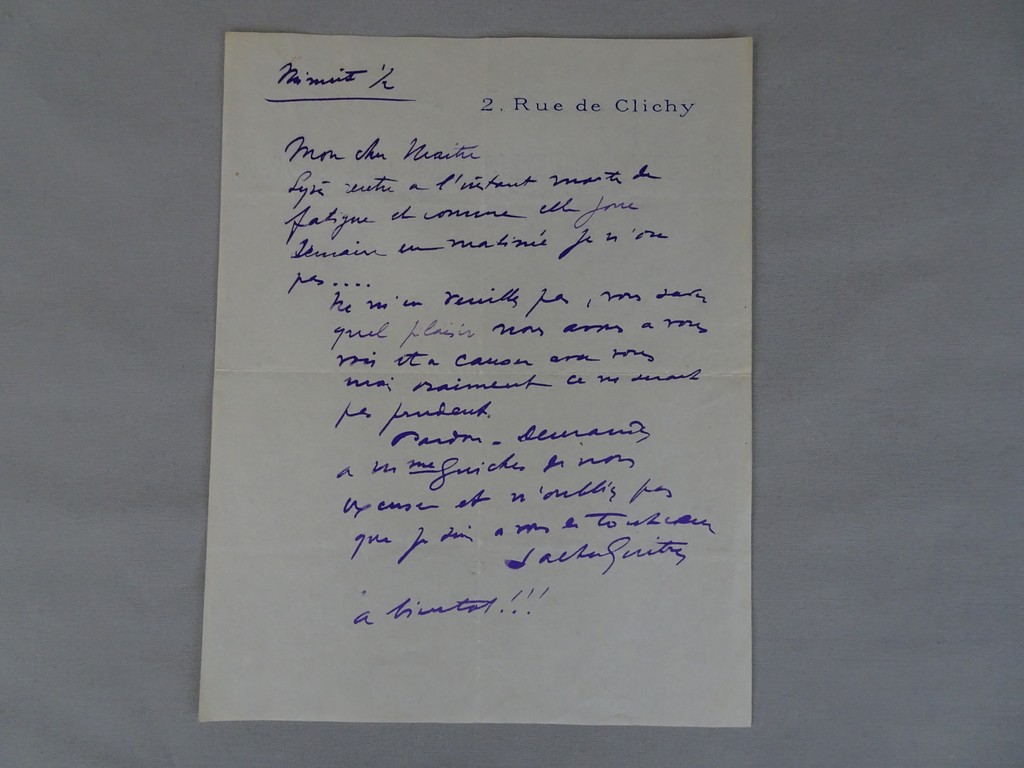 Minuit 1/2
2. Rue de Clichy
Mon cher Maitre
rentre a l'instant morte de
fatigue et comme elle joue
Demain en matinée je n'ose
pas....
Ne m'en veuillez pas, vous savez
quel plaisir nous avons a vous
voir et a causer avec vous
mais vraiment ce ne serait
pas prudent.
Pardon - Demandez
a Mme Guiches de nous
excuser et n'oubliez pas
que je suis a vous de tout coeur
Sacha Guitry
a bientot!!!